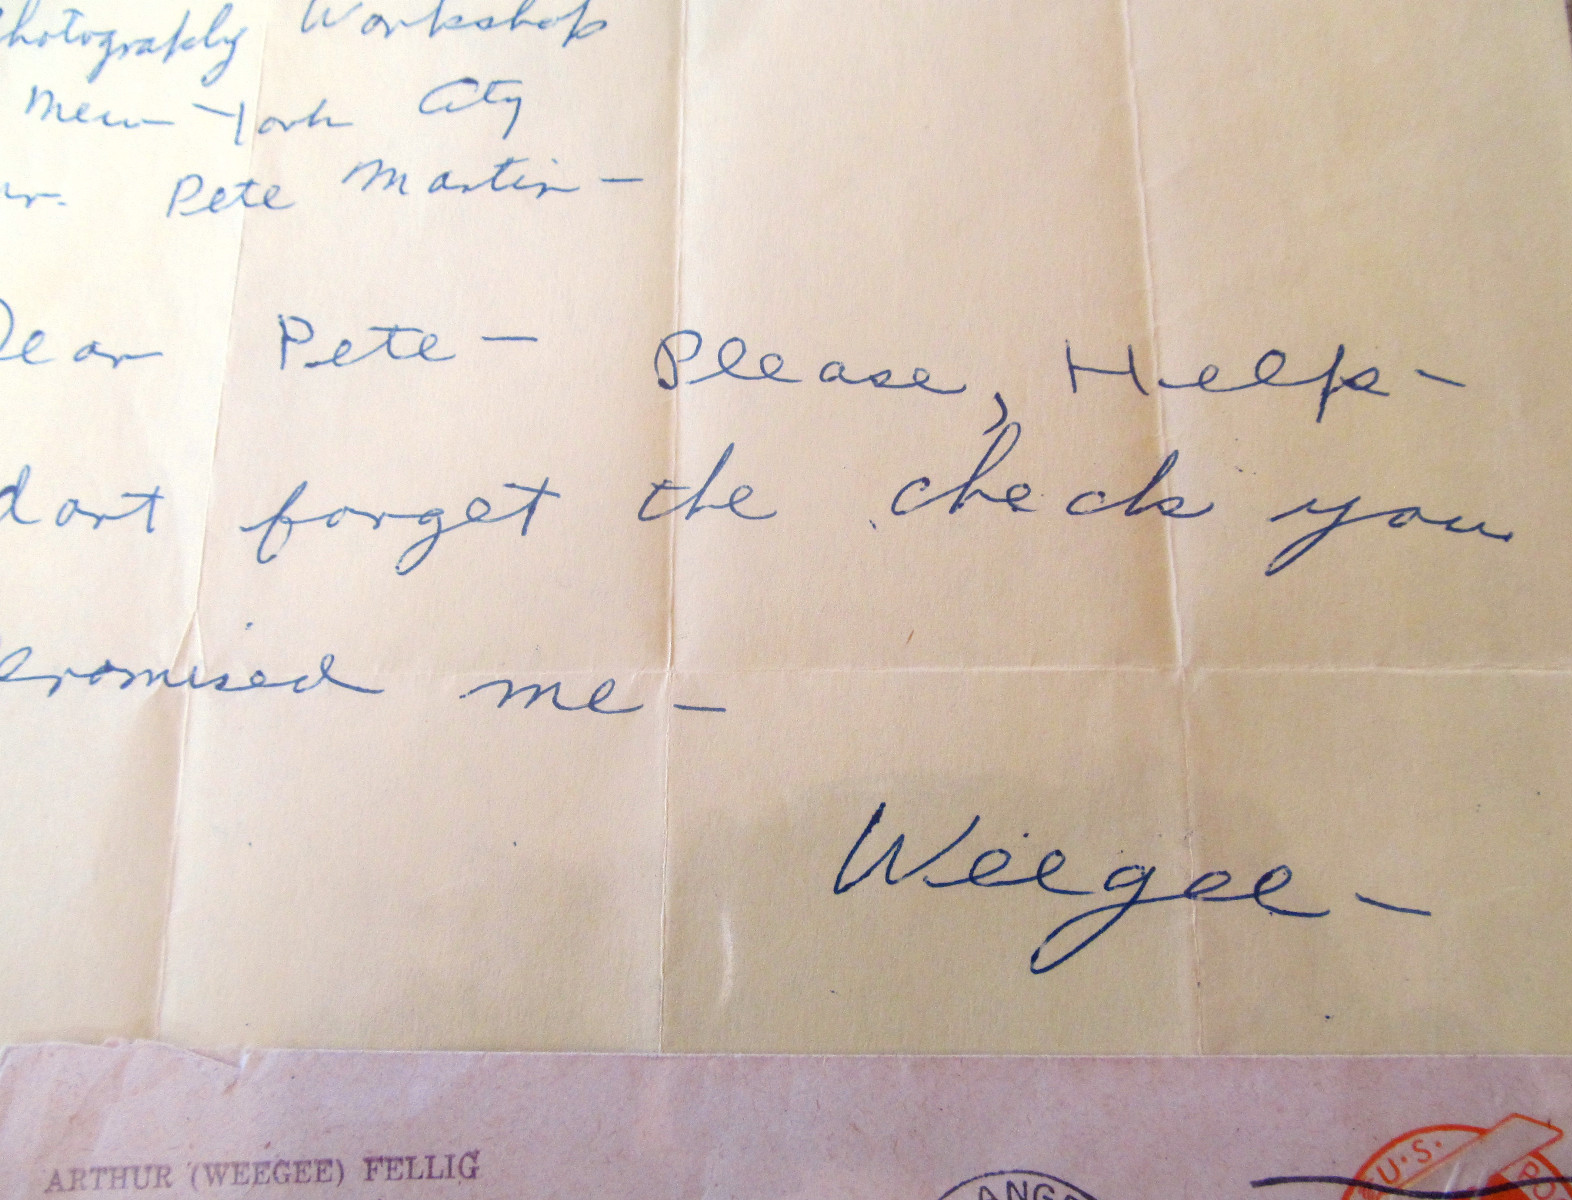 Photography Workshop
New York City
Mr. Pete Martin —
Dear Pete — Please, Help —
dont forget the check you
promised me —
Weegee —
ARTHUR (WEEGEE) FELLIG
ANGE
U.S. PO